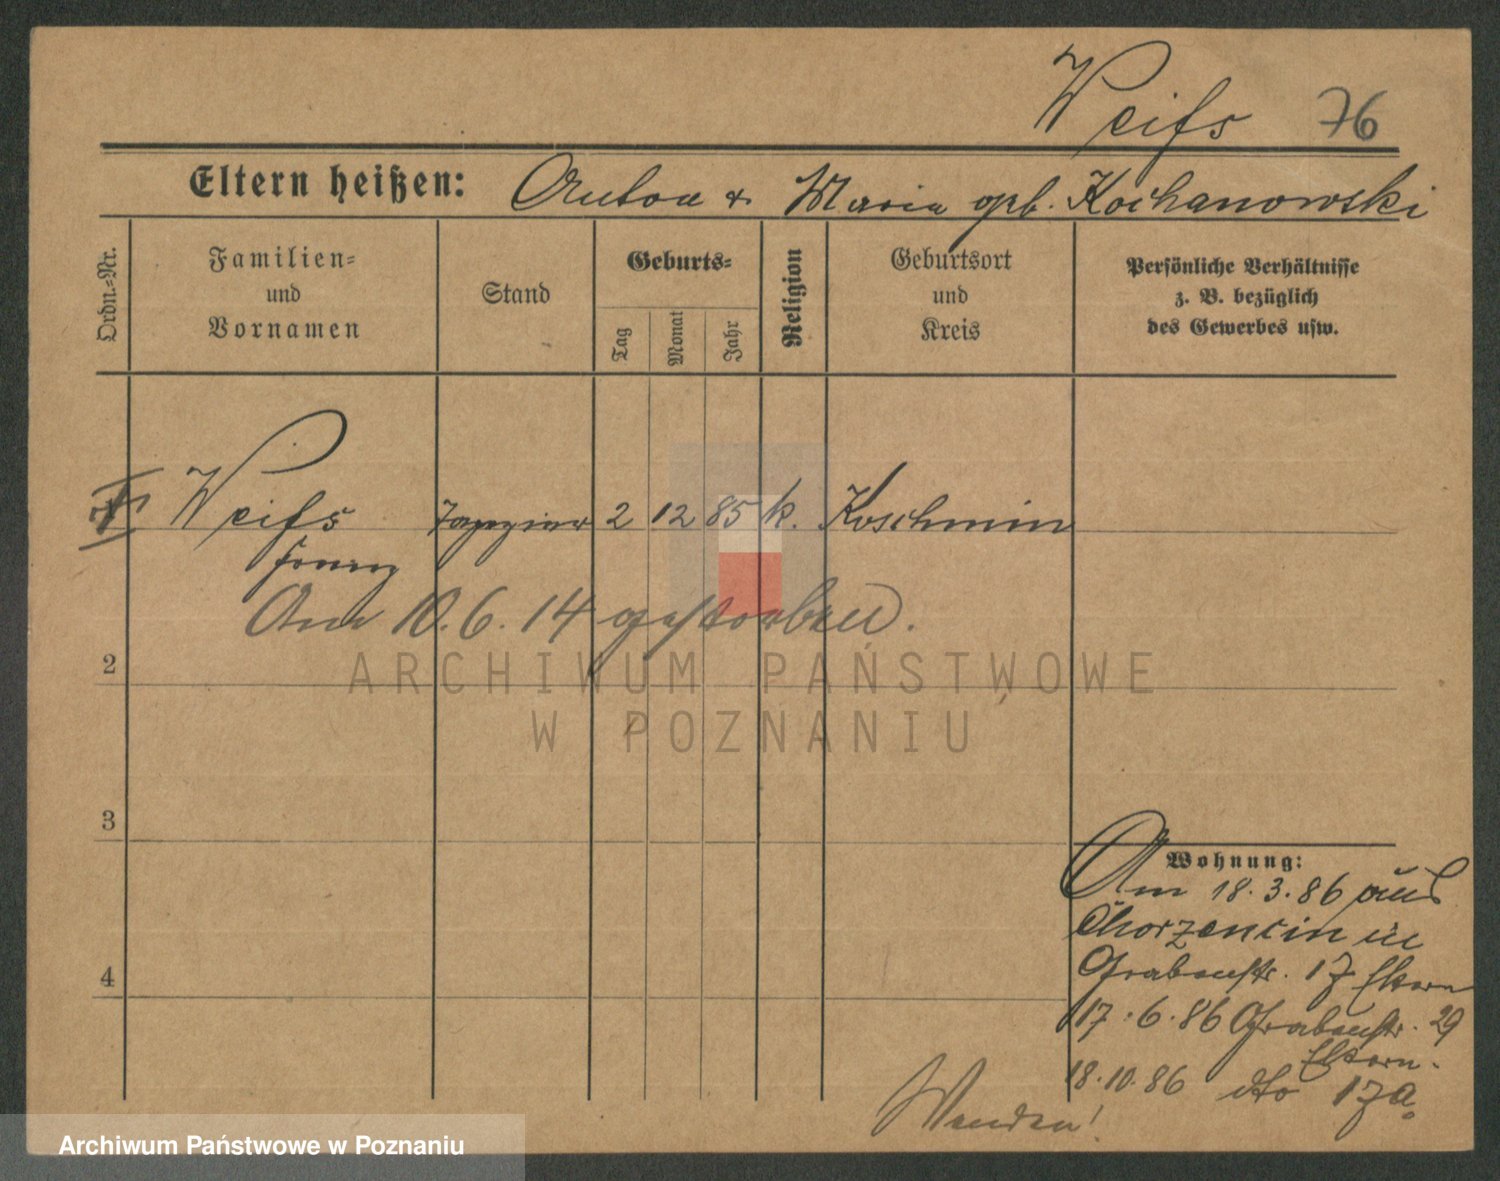 Weiß 76
Eltern heißen: Anton & Maria geb. Kochanowski
Ordn.-Nr.
Familien-
und
Vornamen
Stand
Geburts-
Tag
Monat
Jahr
Religion
Geburtsort
und
Kreis
Persönliche Verhältnisse
z. B. bezüglich
des Gewerbes usw.
1 Weiß Tapezierer 2 12 85 k. Koschmin
Franz
Am 10.6.14 gestorben.
2
3
4
Wohnung:
Am 18.3.86 aus
Chorzencin in
Grabenstr. 17 Eltern
17.6.86 Grabenstr. 29
Eltern.
18.10.86 dto 17a.
Wenden!
ARCHIWUM PAŃSTWOWE
W POZNANIU
Archiwum Państwowe w Poznaniu